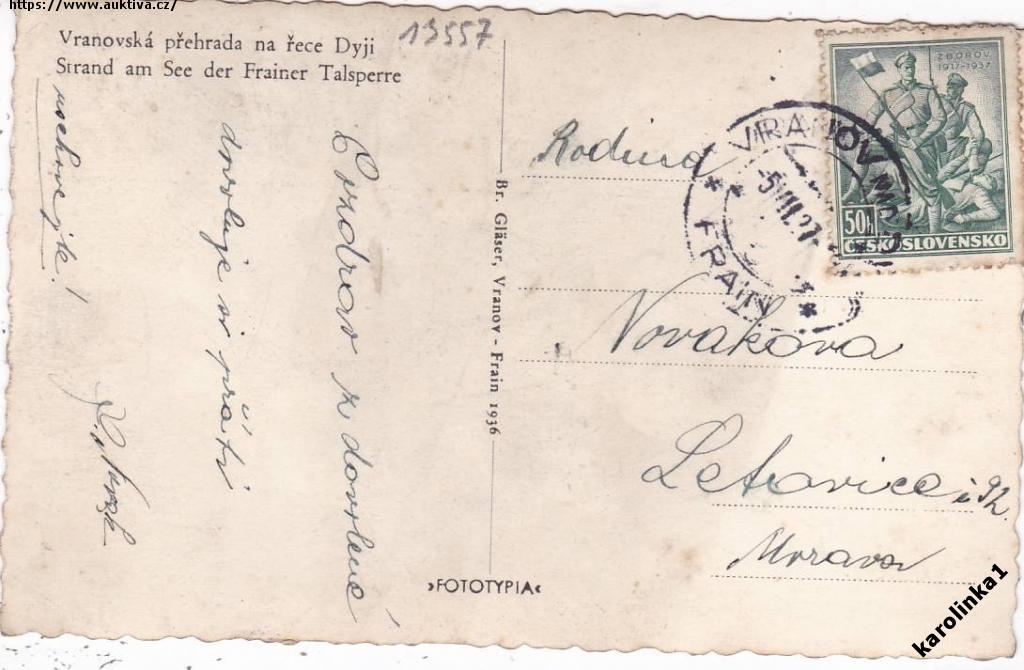 https://www.auktiva.cz/
13557
Vranovská přehrada na řece Dyji
Strand am See der Frainer Talsperre
Pozdrav z dovolené
dovoluje si přáti
všechno
Br. Gläser, Vranov - Frain 1936
»FOTOTYPIA«
ZBOROV
1917-1937
50h
ČESKOSLOVENSKO
VRANOV
FRAIN
Rodina
Novákova
Letovice
Morava
karolinka1